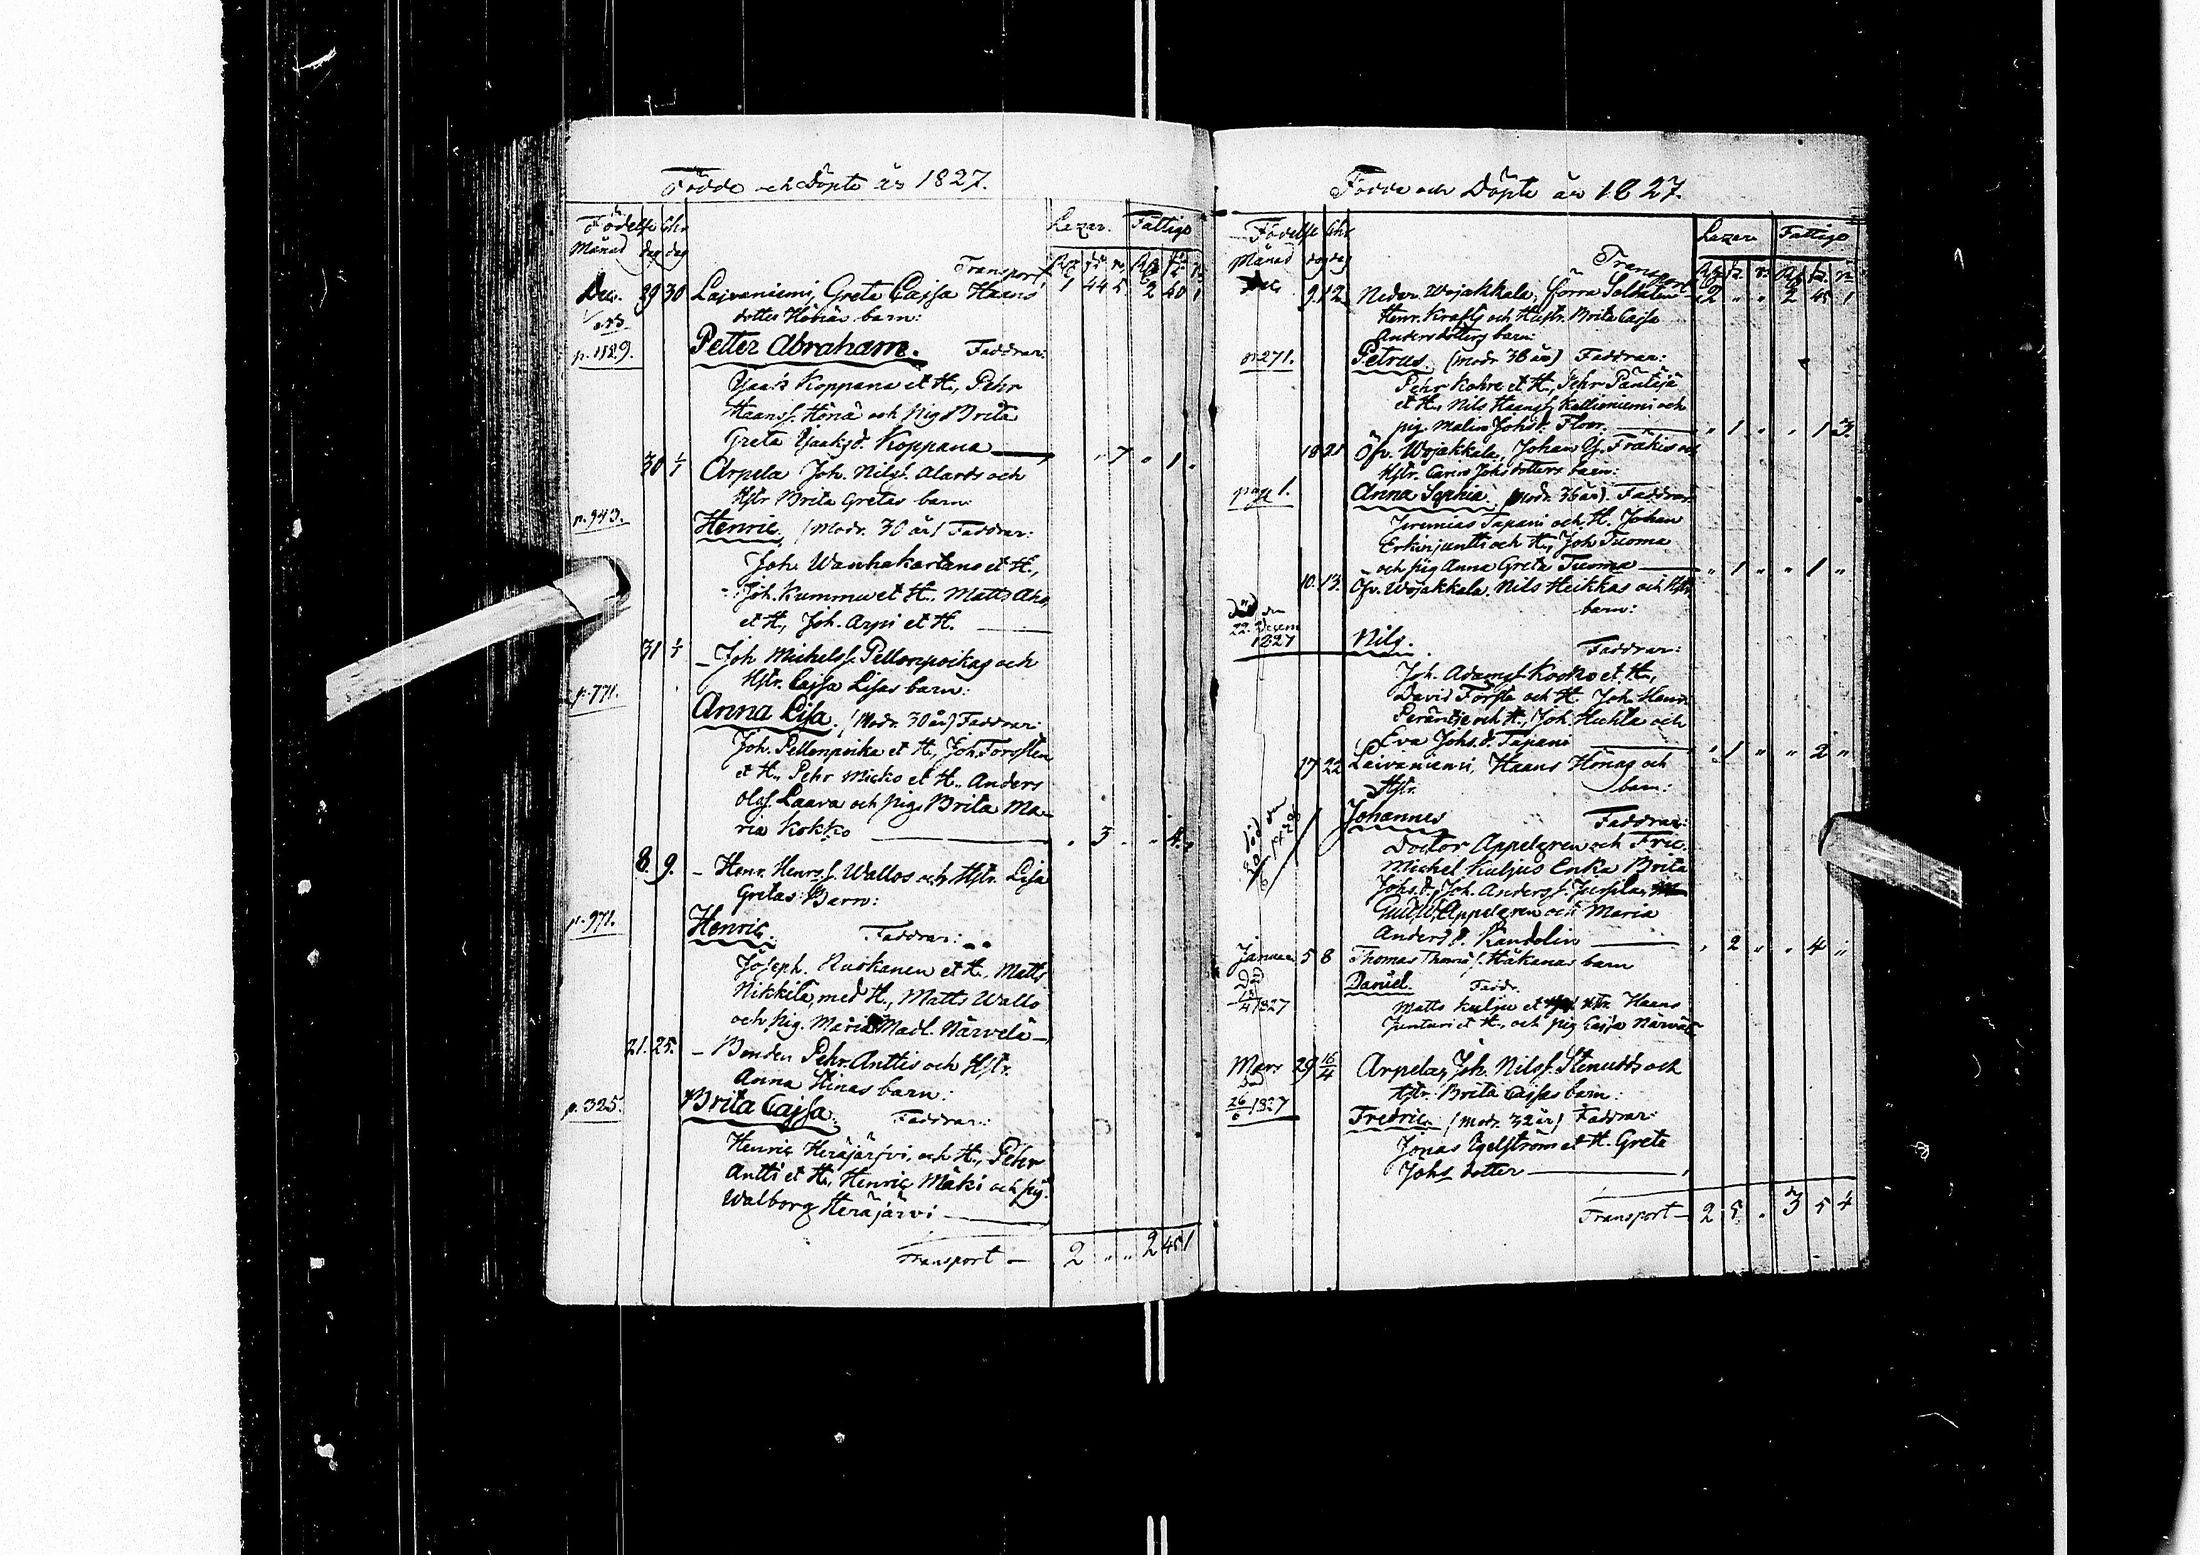 Födde och Döpte år 1827.
Födelse Chr.
Månad dag dag
Lazar. Fattige
Transport 1 44 5 2 40 1
Dec. 29 30 Laivaniemi, Greta Cajsa Haans
dotter Höriäs barn:
p. 1129. Petter Abraham. Faddrar:
Isaac Koppana et H., Pehr
Haanss. Höriä och pig. Brita
Greta Isaaksd. Koppana — 7 " 1 "
30 1/1 Arpela Joh. Nilss. Alards och
Hstr Brita Gretas barn:
p. 943. Henric. (Modr. 30 år) Faddrar:
Joh. Wanhakartano et H.,
Joh. Kummu et H., Matts Aho
et H., Joh. Arpi et H. —
31 1/1 – Joh Michelss. Pellonpoikas och
Hstr. Cajsa Lisas barn:
p. 771. Anna Lisa. (Modr. 30 år) Faddrar:
Joh. Pellonpoika et H., Joh. Torsten
et H., Pehr Micko et H., Anders
Olofs. Laava och pig. Brita Ma-
ria Kokko — " 3 " " 4 "
8. 9. – Henr. Henrss. Wallos och Hstr. Lisa
Gretas Barn:
p. 971. Henric. Faddrar:
Joseph. Ruokanen et H., Matts
Nikkilä med H., Matts Wallo
och pig. Maria Madl. Närvelä —
21. 25. – Bonden Pehr Anttis och Hstr.
Anna Stinas barn:
p. 325. Brita Cajsa. Faddrar:
Henric Heräjärfvi, och H., Pehr
Antti et H., Henric Mäki och pig.
Walborg Heräjärvi —
Transport — 2 " " 2 45 1
Födde och Döpte år 1827.
Födelse Chr.
Månad dag dag
Lazar. Fattige
Transport 2 " " 2 45 1
Dec 9. 12. Neder. Wojakkala, förra Soldaten
Henr. Krafts och Hustr. Brita Cajsa
Andersdotters barn:
p. 271. Petrus. (Modr 38 år) Faddrar:
Pehr Kohre et H., Pehr Päntäjä
et H., Nils Haanss. Kallioniemi och
pig. Malin Johsd. Floor. — " 1 " " 1 3.
18 21 Öfv. Wojakkala, Johan Fräkis och
Hstr. Carin Johsdotters barn:
pag 1. Anna Sophia. (Modr. 36 år). Faddrar:
Jeremias Tapani och H. Johan
Erkinjuntti och H., Joh Tuoma
och pig Anna Greta Tuoma — " 1 " " 1 "
10. 13. Öfv. Wojakkala, Nils Heikkas och Hstr.
barn:
Död den
22. Decem
1827 Nils. Faddrar:
Joh. Adamss. Kocko et H.,
David Torsta och H. Joh. Henr.
Peräntje och H., Joh. Huhta och
Eva Johs.d. Tapani — " 1 " " 2 "
17 22 Laivaniemi, Haans Hönas och
Hstr. barn:
Död den Johannes Faddrar:
Doctor Appelgren och Fru.
Michel Kuljus Enka Brita
Johs.d., Joh. Anderss. Juopla,
Appelgren och Maria
Anders d. Kandelin — " 2 " " 4 "
Januar. 5 8 Thomas Thoms s. Häkanas barn
Död
4 1827 Daniel. Faddr.
Matts Kulju et Hstr. Haans
Junturi et H., och pig Cajsa Närvä
Mars 29 16/4 Arpela, Joh. Nilss. Stenudds och
Hstr. Brita Cajsas barn:
Död 26/6 1827 Fredric. (Modr. 32 år) Faddrar:
Jonas Egelström et H. Greta
Johs dotter —
Transport — 2 5. " 3 5 4